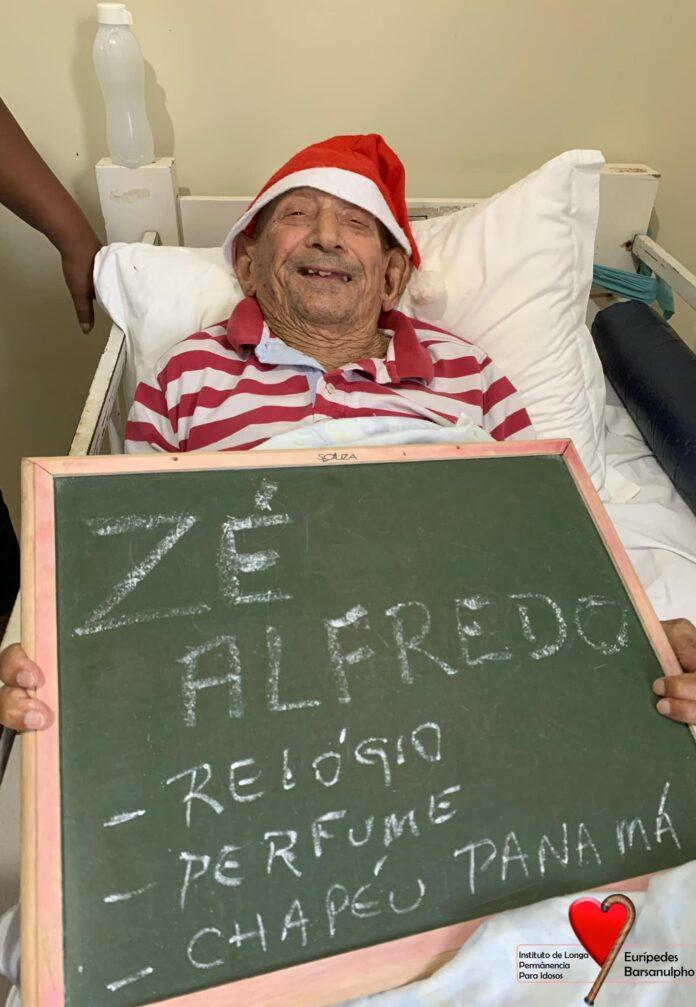 SOUZA
ZÉ
ALFREDO
- RELÓGIO
- PERFUME
- CHAPÉU PANAMÁ
Instituto de Longa
Permânencia
Para Idosos
Eurípedes
Barsanulpho